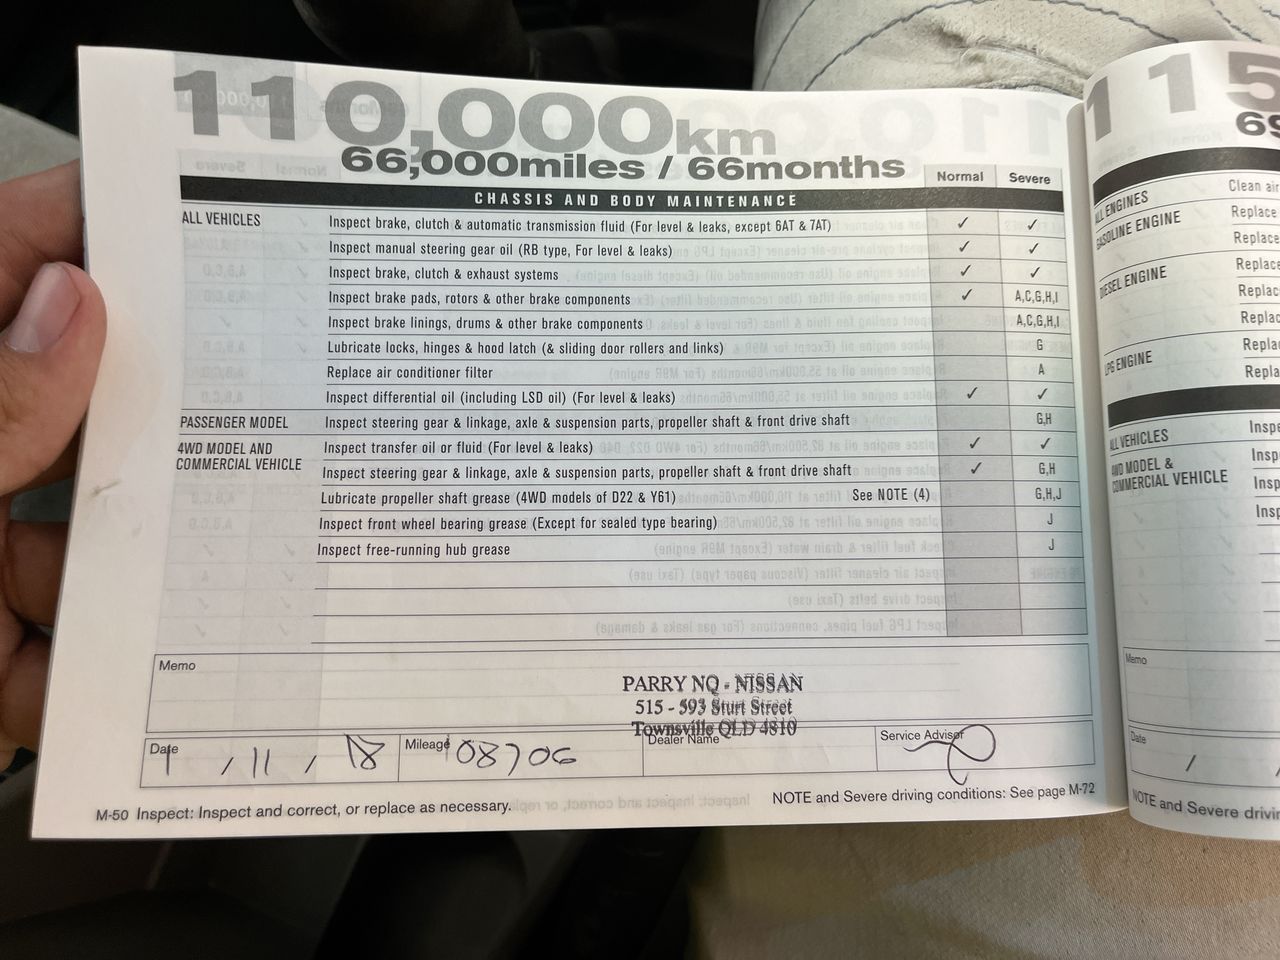 110,000km
66,000miles / 66months
Normal Severe
CHASSIS AND BODY MAINTENANCE
ALL VEHICLES Inspect brake, clutch & automatic transmission fluid (For level & leaks, except 6AT & 7AT) ✓ ✓
Inspect manual steering gear oil (RB type, For level & leaks) ✓ ✓
Inspect brake, clutch & exhaust systems ✓ ✓
Inspect brake pads, rotors & other brake components ✓ A,C,G,H,I
Inspect brake linings, drums & other brake components A,C,G,H,I
Lubricate locks, hinges & hood latch (& sliding door rollers and links) G
Replace air conditioner filter A
Inspect differential oil (including LSD oil) (For level & leaks) ✓ ✓
PASSENGER MODEL Inspect steering gear & linkage, axle & suspension parts, propeller shaft & front drive shaft G,H
4WD MODEL AND
COMMERCIAL VEHICLE
Inspect transfer oil or fluid (For level & leaks) ✓ ✓
Inspect steering gear & linkage, axle & suspension parts, propeller shaft & front drive shaft ✓ G,H
Lubricate propeller shaft grease (4WD models of D22 & Y61) See NOTE (4) G,H,J
Inspect front wheel bearing grease (Except for sealed type bearing) J
Inspect free-running hub grease J
Memo
PARRY NQ - NISSAN
515 - 593 Sturt Street
Townsville QLD 4810
Date 1 / 11 / 18 Mileage 108706 Dealer Name Service Advisor
M-50 Inspect: Inspect and correct, or replace as necessary. NOTE and Severe driving conditions: See page M-72
115
69
ALL ENGINES Clean air
GASOLINE ENGINE Replace
Replace
DIESEL ENGINE Replace
Replac
Replac
LPG ENGINE Repla
Repla
ALL VEHICLES Inspe
4WD MODEL &
COMMERCIAL VEHICLE
Insp
Insp
Insp
Memo
Date / /
NOTE and Severe drivin